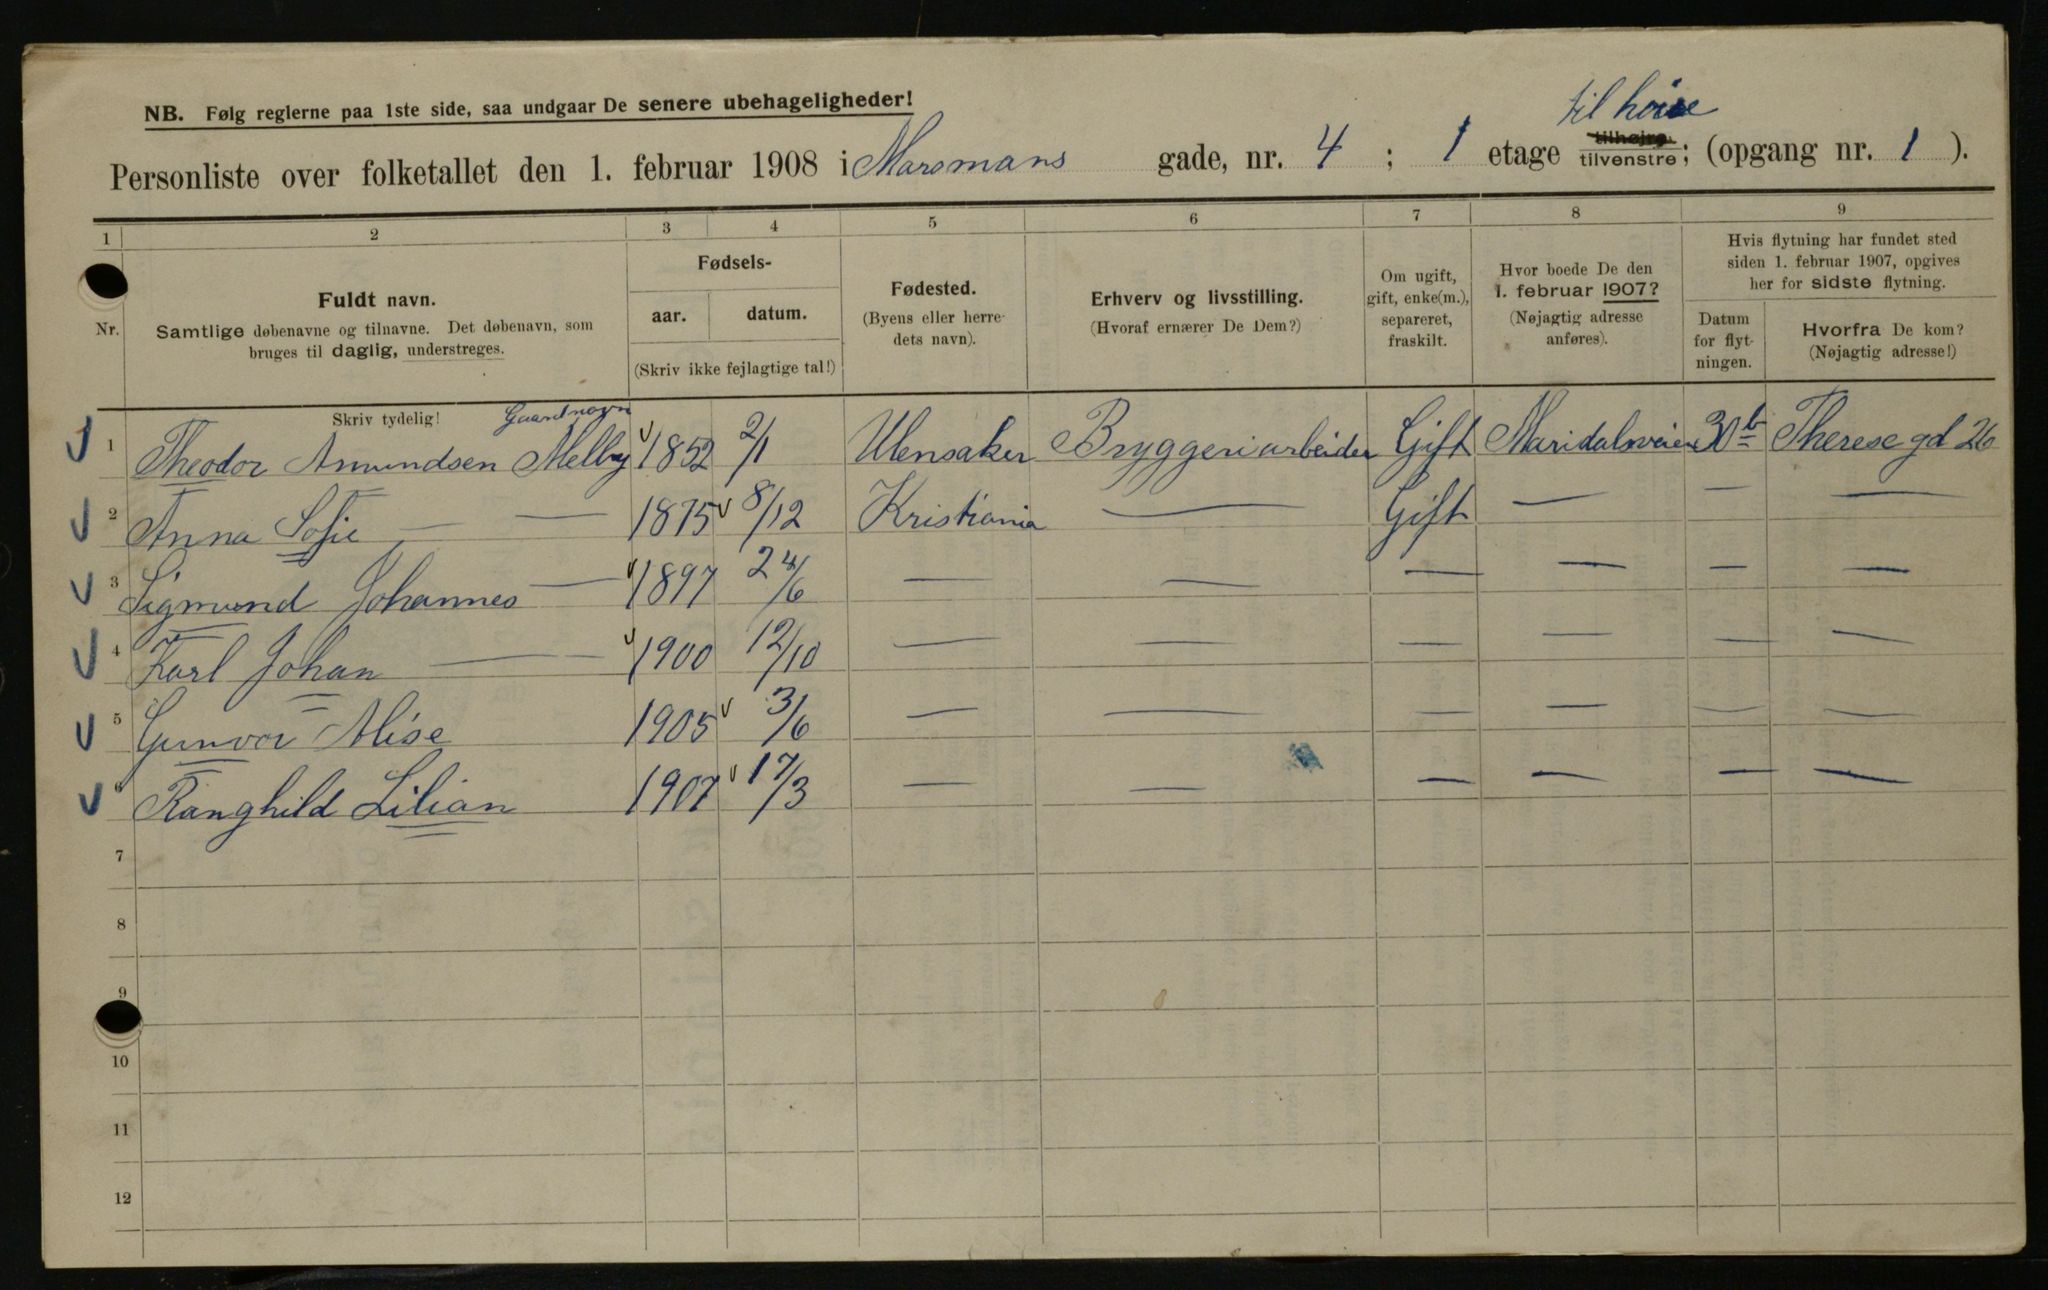 NB. Følg reglerne paa 1ste side, saa undgaar De senere ubehageligheder!
til høire
Personliste over folketallet den 1. februar 1908 i Maromans gade, nr. 4 ; 1 etage tilhøjre tilvenstre; (opgang nr. 1 ).
1 2 3 4 5 6 7 8 9
Nr.
Fuldt navn.
Samtlige døbenavne og tilnavne. Det døbenavn, som
bruges til daglig, understreges.
Fødsels-
aar. datum.
(Skriv ikke fejlagtige tal!)
Fødested.
(Byens eller herre-
dets navn).
Erhverv og livsstilling.
(Hvoraf ernærer De Dem?)
Om ugift,
gift, enke(m.),
separeret,
fraskilt.
Hvor boede De den
1. februar 1907?
(Nøjagtig adresse
anføres).
Hvis flytning har fundet sted
siden 1. februar 1907, opgives
her for sidste flytning.
Datum
for flyt-
ningen.
Hvorfra De kom?
(Nøjagtig adresse!)
Skriv tydelig! Gaardnavn
1 Theodor Amundsen Melby 1852 2/1 Ulensaker Bryggeriarbeider Gift Maridalsveien 30 b Therese gd 26
2 Anna Sofie — — 1875 8/12 Kristiania — Gift — — —
3 Sigmund Johannes — 1897 24/6 — — — — — —
4 Karl Johan — 1900 12/10 — — — — — —
5 Gunvor Alise 1905 3/6 — — — — — —
6 Ranghild Lilian 1907 17/3 — — — — — —
7
8
9
10
11
12